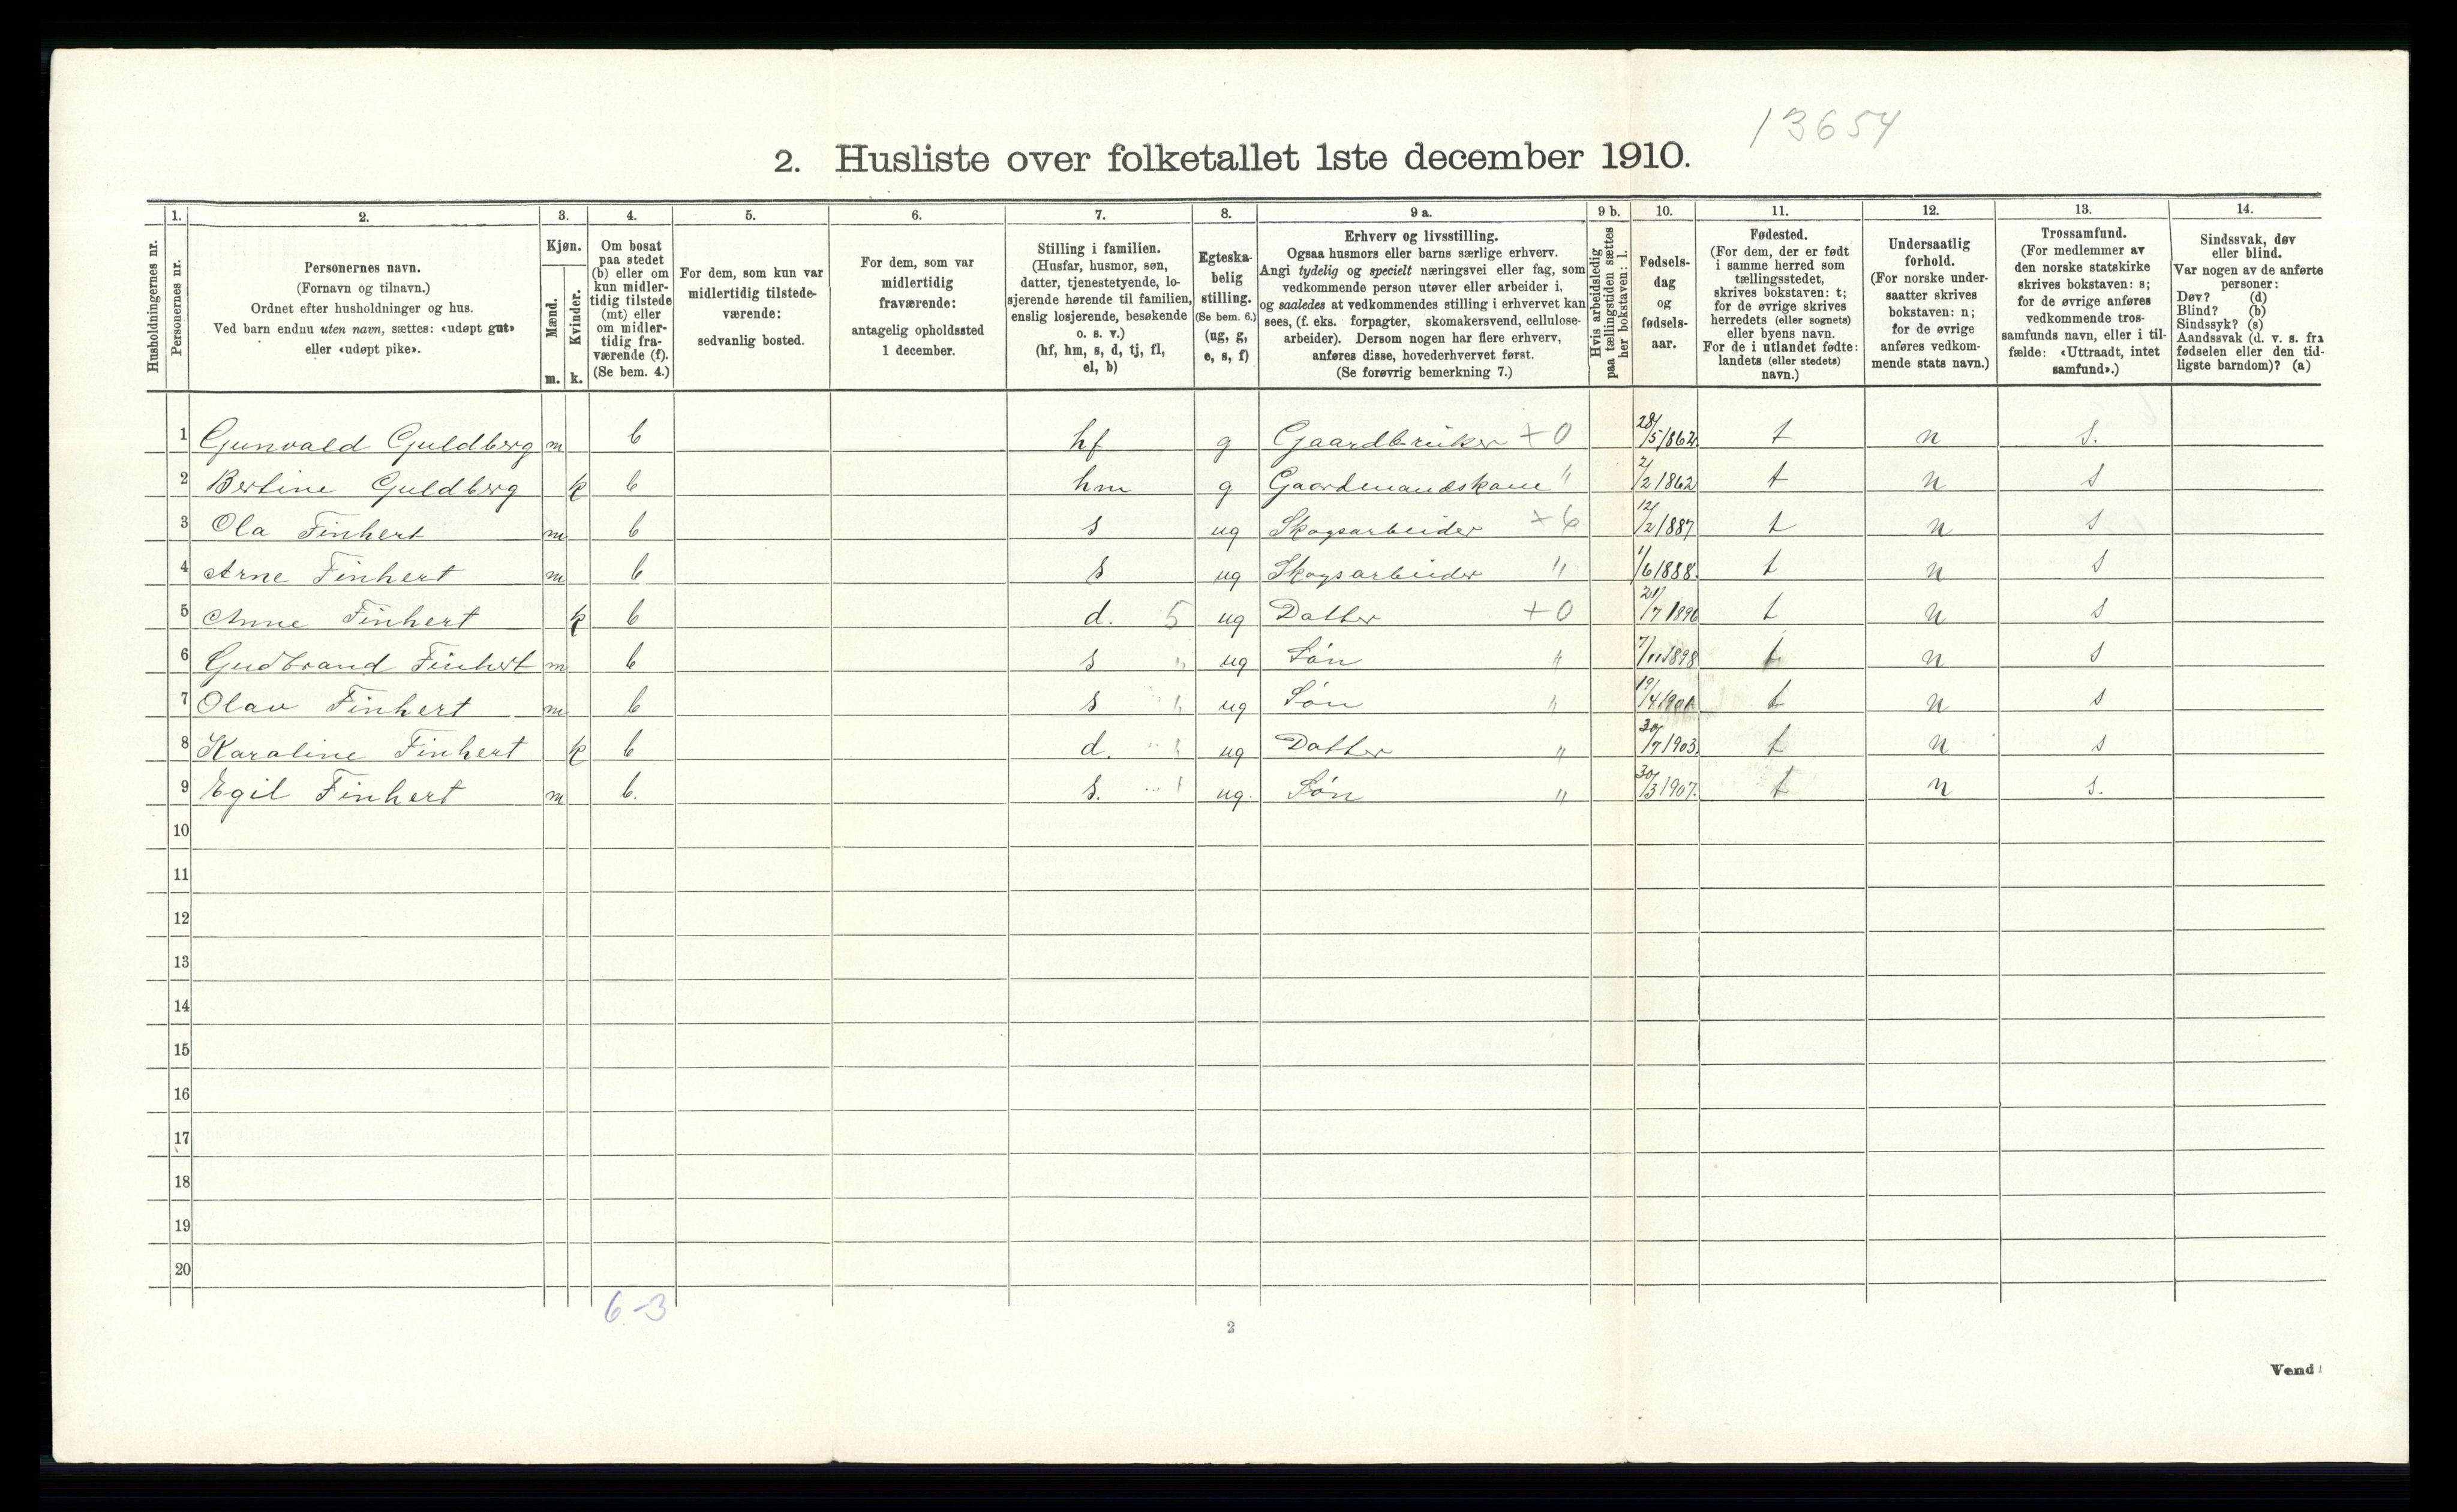 13654
2. Husliste over folketallet 1ste december 1910.
1. 2. 3. 4. 5. 6. 7. 8. 9 a. 9 b. 10. 11. 12. 13. 14.
Husholdningernes nr.
Personernes nr.
Personernes navn.
(Fornavn og tilnavn.)
Ordnet efter husholdninger og hus.
Ved barn endnu uten navn, sættes: «udøpt gut»
eller «udøpt pike».
Kjøn.
Mænd.
Kvinder.
m. k.
Om bosat
paa stedet
(b) eller om
kun midler-
tidig tilstede
(mt) eller
om midler-
tidig fra-
værende (f).
(Se bem. 4.)
For dem, som kun var
midlertidig tilstede-
værende:
sedvanlig bosted.
For dem, som var
midlertidig
fraværende:
antagelig opholdssted
1 december.
Stilling i familien.
(Husfar, husmor, søn,
datter, tjenestetyende, lo-
sjerende hørende til familien,
enslig losjerende, besøkende
o. s. v.)
(hf, hm, s, d, tj, fl,
el, b)
Egteska-
belig
stilling.
(Se bem. 6.)
(ug, g,
e, s, f)
Erhverv og livsstilling.
Ogsaa husmors eller barns særlige erhverv.
Angi tydelig og specielt næringsvei eller fag, som
vedkommende person utøver eller arbeider i,
og saaledes at vedkommendes stilling i erhvervet kan
sees, (f. eks. forpagter, skomakersvend, cellulose-
arbeider). Dersom nogen har flere erhverv,
anføres disse, hovederhvervet først.
(Se forøvrig bemerkning 7.)
Hvis arbeidsledig
paa tællingstiden sættes
her bokstaven: l.
Fødsels-
dag
og
fødsels-
aar.
Fødested.
(For dem, der er født
i samme herred som
tællingsstedet,
skrives bokstaven: t;
for de øvrige skrives
herredets (eller sognets)
eller byens navn.
For de i utlandet fødte:
landets (eller stedets)
navn.)
Undersaatlig
forhold.
(For norske under-
saatter skrives
bokstaven: n;
for de øvrige
anføres vedkom-
mende stats navn.)
Trossamfund.
(For medlemmer av
den norske statskirke
skrives bokstaven: s;
for de øvrige anføres
vedkommende tros-
samfunds navn, eller i til-
fælde: «Uttraadt, intet
samfund».)
Sindssvak, døv
eller blind.
Var nogen av de anførte
personer:
Døv? (d)
Blind? (b)
Sindssyk? (s)
Aandssvak (d. v. s. fra
fødselen eller den tid-
ligste barndom)? (a)
1 Gunvald Guldberg m b hf g Gaardbruker +0 28/5 1862 t n s.
2 Bertine Guldberg k b hm g Gaardmandskone " 2/2 1862 t n s
3 Ola Finhert m b s ug Skogsarbeider +6 12/2 1887 t n s
4 Arne Finhert m b s ug Skogsarbeider " 1/6 1888. t n s
5 Anne Finhert k b d. 5 ug Datter +0 21/7 1896 t n s
6 Gudbrand Finhert m b s " ug Søn " 7/11 1898 t n s
7 Olav Finhert m b s " ug Søn " 19/4 t n s
8 Karoline Finhert k b d. " ug Datter " 30/7 1903. t n s
9 Egil Finhert m b. s. " ug. Søn " 30/3 1907. t n s.
10
11
12
13
14
15
16
17
18
19
20
6-3
2
Vend!